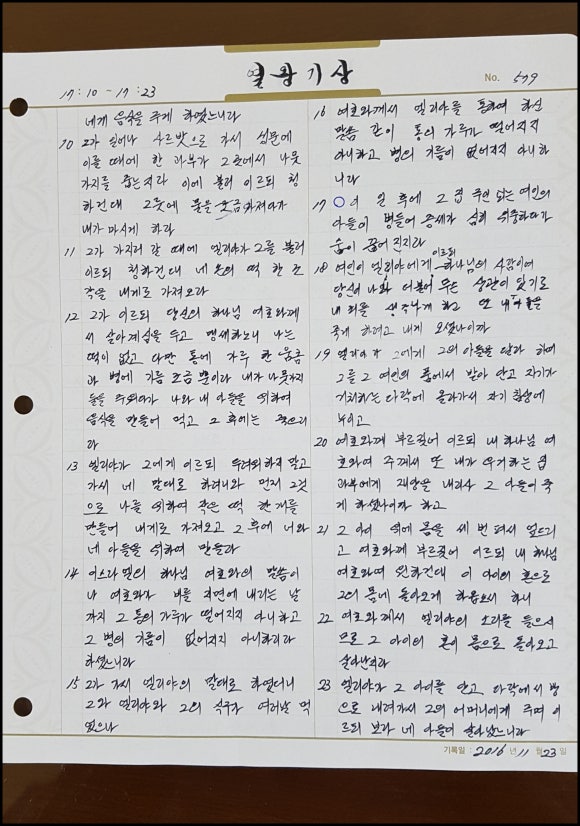 열왕기상
17:10 ~ 17:23
No. 579
네게 음식을 주게 하였느니라
10 그가 일어나 사르밧으로 가서 성문에
이를 때에 한 과부가 그 곳에서 나뭇
가지를 줍는지라 이에 불러 이르되 청
하건대 그릇에 물을 조금 가져다가
내가 마시게 하라
11 그가 가지러 갈 때에 엘리야가 그를 불러
이르되 청하건대 네 손의 떡 한 조
각을 내게로 가져오라
12 그가 이르되 당신의 하나님 여호와께
서 살아계심을 두고 맹세하노니 나는
떡이 없고 다만 통에 가루 한 움큼
과 병에 기름 조금 뿐이라 내가 나뭇가지
둘을 주워다가 나와 내 아들을 위하여
음식을 만들어 먹고 그 후에는 죽으리
라
13 엘리야가 그에게 이르되 두려워하지 말고
가서 네 말대로 하려니와 먼저 그것
으로 나를 위하여 작은 떡 한 개를
만들어 내게로 가져오고 그 후에 너와
네 아들을 위하여 만들라
14 이스라엘의 하나님 여호와의 말씀이
나 여호와가 비를 지면에 내리는 날
까지 그 통의 가루가 떨어지지 아니하고
그 병의 기름이 없어지지 아니하리라
하셨느니라
15 그가 가서 엘리야의 말대로 하였더니
그와 엘리야와 그의 식구가 여러날 먹
었으나
16 여호와께서 엘리야를 통하여 하신
말씀 같이 통의 가루가 떨어지지
아니하고 병의 기름이 없어지지 아니하
니라
17 ○ 이 일 후에 그 집 주인 되는 여인의
아들이 병들어 증세가 심히 위중하다가
숨이 끊어진지라
이르되
18 여인이 엘리야에게 하나님의 사람이여
당신이 나와 더불어 무슨 상관이 있기로
내 죄를 생각나게 하고 또 내 아들을
죽게 하려고 내게 오셨나이까
19 엘리야가 그에게 그의 아들을 달라 하여
그를 그 여인의 품에서 받아 안고 자기가
거처하는 다락에 올라가서 자기 침상에
누이고
20 여호와께 부르짖어 이르되 내 하나님 여
호와여 주께서 또 내가 우거하는 집
과부에게 재앙을 내리사 그 아들이 죽
게 하셨나이까 하고
21 그 아이 위에 몸을 세 번 펴서 엎드리
고 여호와께 부르짖어 이르되 내 하나님
여호와여 원하건대 이 아이의 혼으로
그의 몸에 돌아오게 하옵소서 하니
22 여호와께서 엘리야의 소리를 들으시
므로 그 아이의 혼이 몸으로 돌아오고
살아난지라
23 엘리야가 그 아이를 안고 다락에서 방
으로 내려가서 그의 어머니에게 주며 이
르되 보라 네 아들이 살아났느니라
기록일 : 2016 년 11 월 23 일